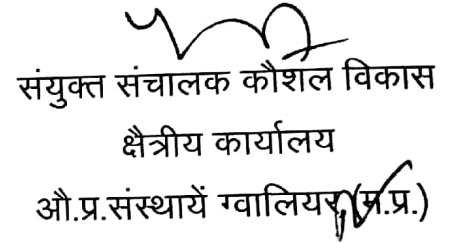 संयुक्त संचालक कौशल विकास
क्षैत्रीय कार्यालय
औ.प्र.संस्थायें ग्वालियर (म.प्र.)